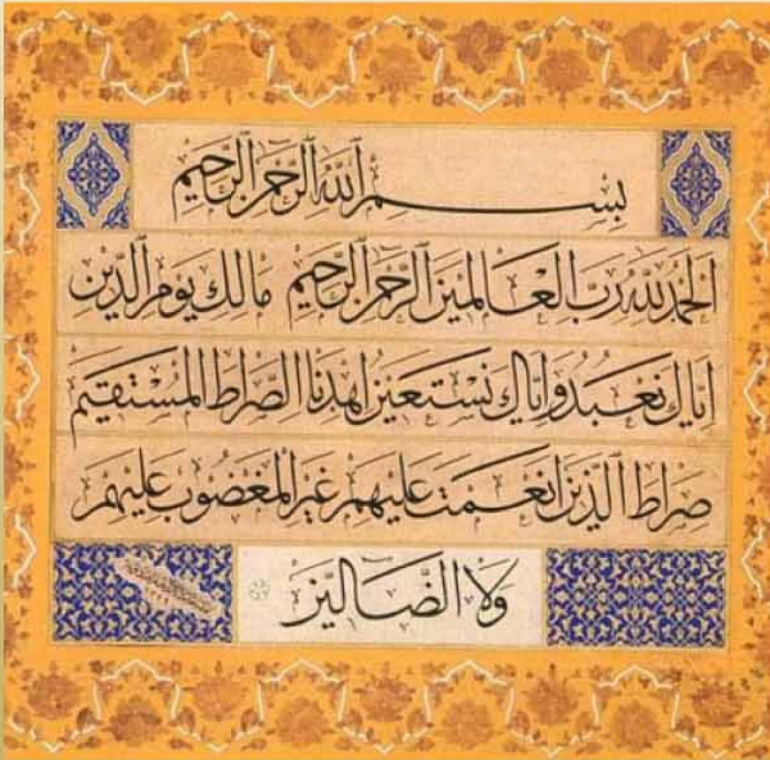 بسم الله الرحمن الرحيم
الحمد لله رب العالمين الرحمن الرحيم مالك يوم الدين
اياك نعبد واياك نستعين اهدنا الصراط المستقيم
صراط الذين انعمت عليهم غير المغضوب عليهم
ولا الضالين